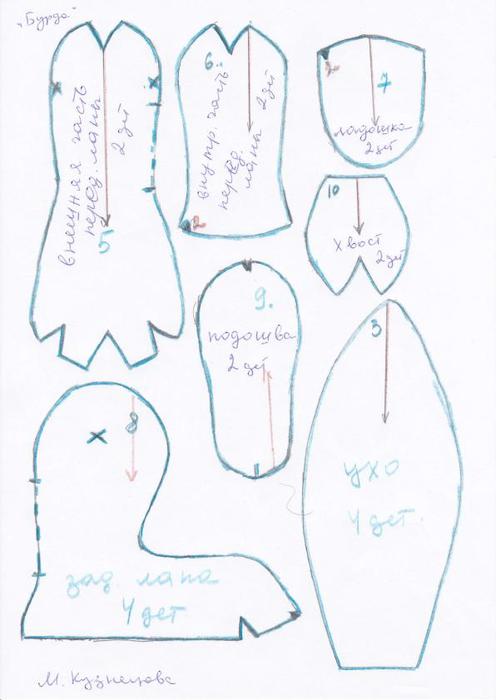 "Бурда"
внешняя часть
перед. лапы
2 дт
5
6.
внутр. часть
перед.
лапы
2 дт
2
2
7
ладошка
2 дет
10
хвост
2 дет
9.
подошва
2 дет
3
ухо
4 дет.
8
зад. лапа
4 дет
М. Кузнецова